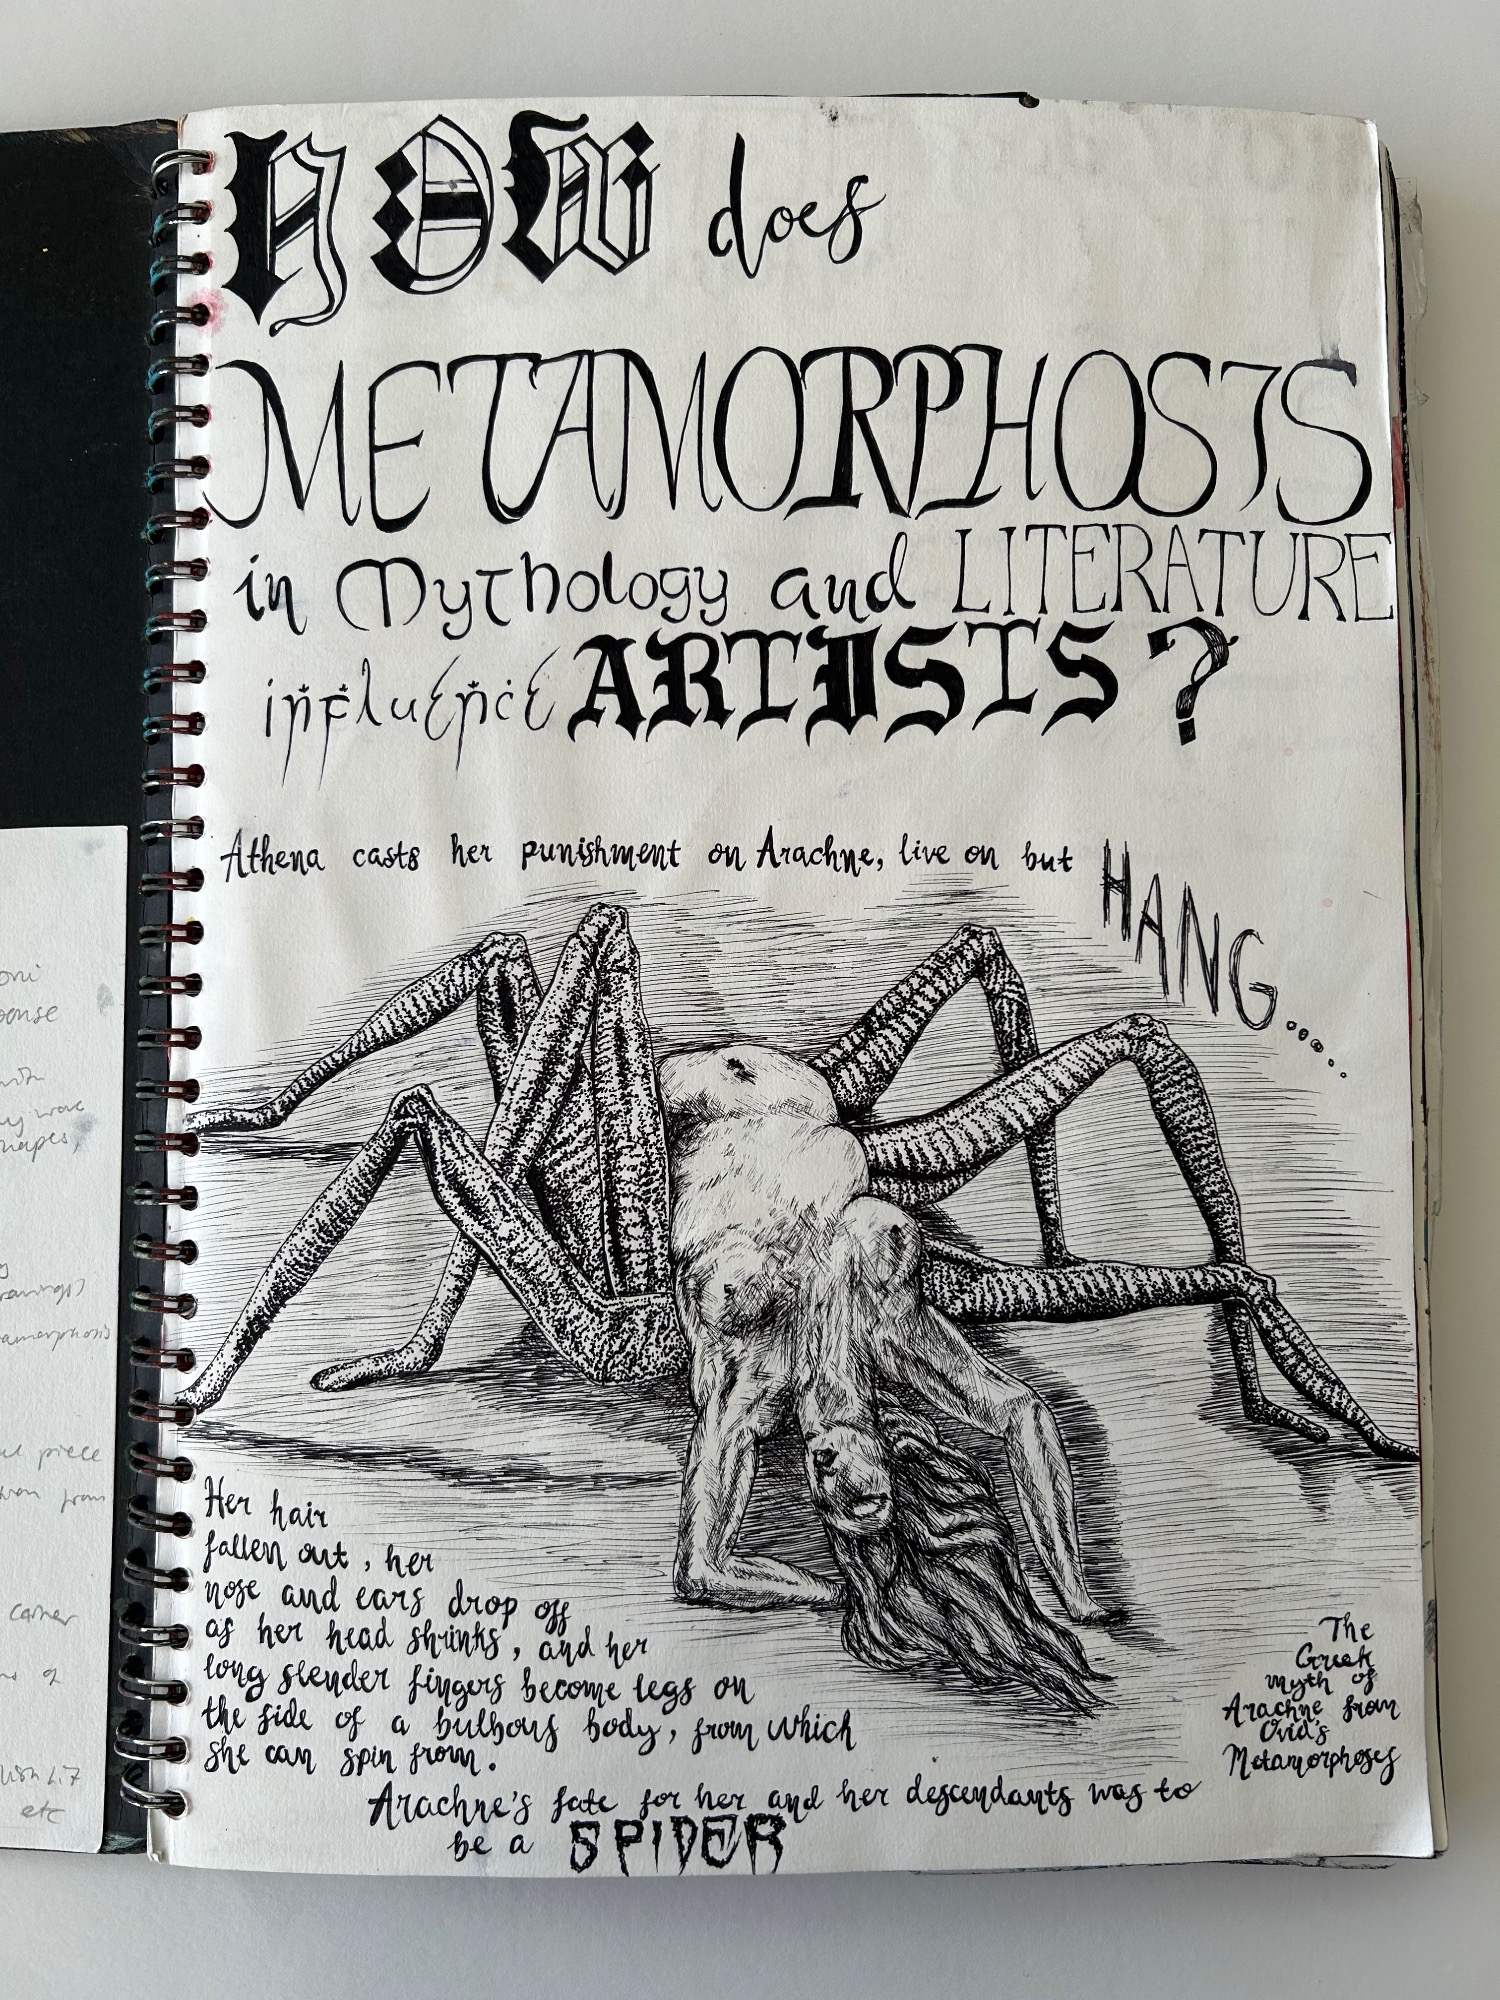 HOW does
METAMORPHOSIS
in Mythology and LITERATURE
influence ARTISTS?
Athena casts her punishment on Arachne, live on but
HANG.....
Her hair
fallen out, her
nose and ears drop off
as her head shrinks, and her
long slender fingers become legs on
the side of a bulbous body, from which
she can spin from.
The
Greek
myth of
Arachne from
Ovid's
Metamorphoses
Arachne's fate for her and her descendants was to
be a SPIDER
piece
from
etc